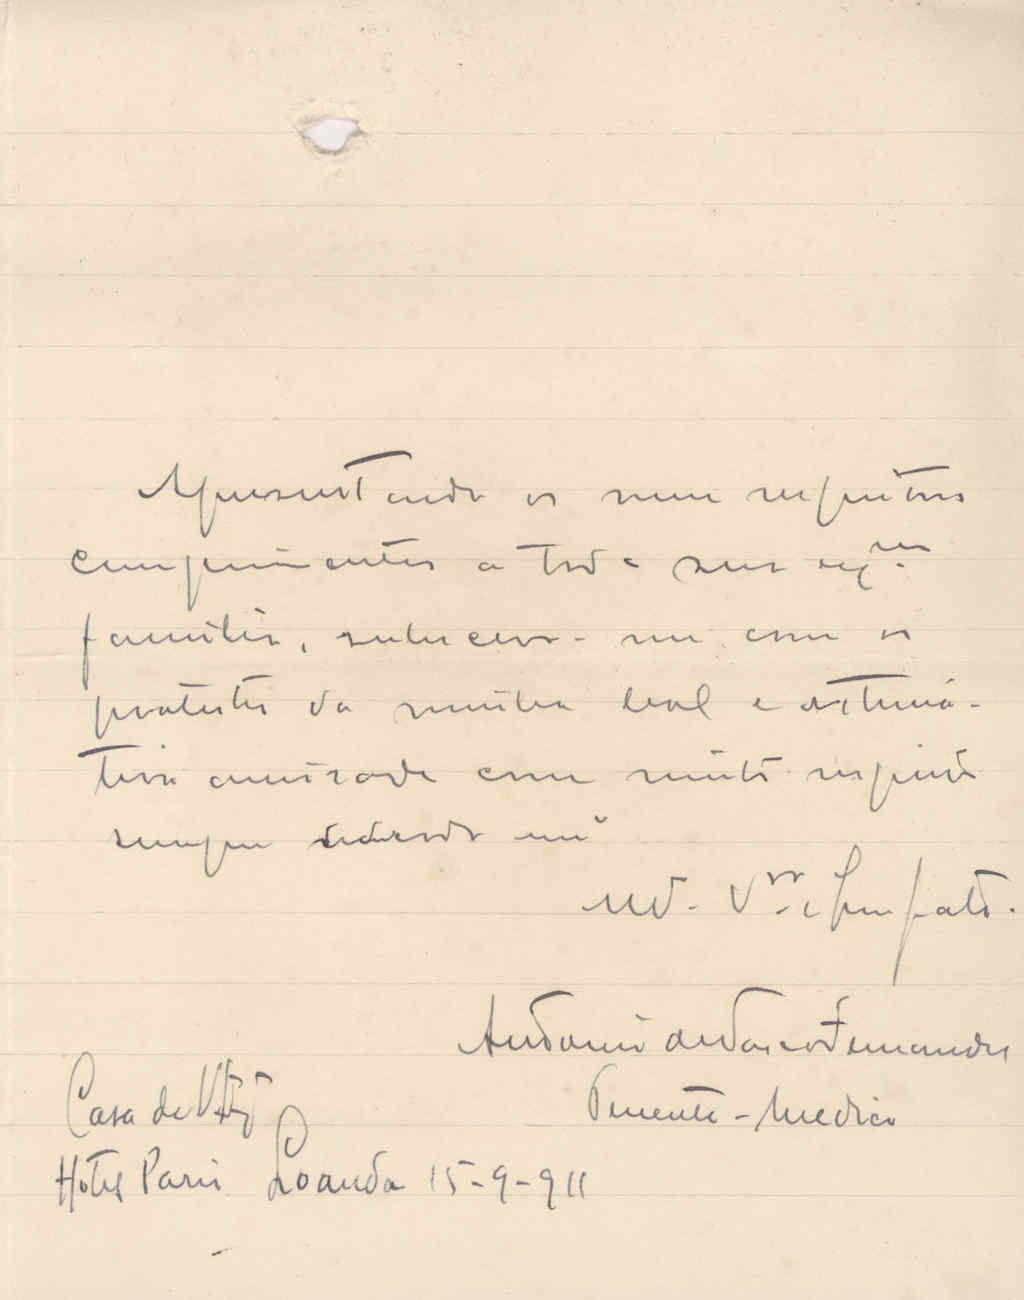 Apresentando os meus respeitosos
cumprimentos a toda sua Ex.ma
familia, subscrevo-me com os
protestos da minha leal e estima-
tiva amisade com muito respeito
sempre
M.to V.or e
Antonio de Vasco Fernandes
Tenente-Medico
Casa de
Hotel Paris Loanda 15-9-911